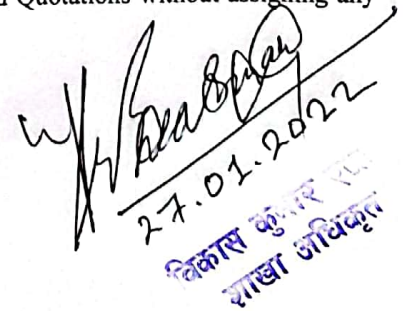 Quotations without assigning any
27.01.2022
विकास कुमार
शाखा अधिकृत